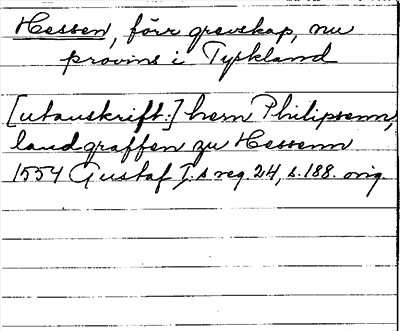 Hessen, förr grevskap, nu
provins i Tyskland
[utanskrift:] hern Philipsenn,
landgraffen zu Hessenn
1554 Gustaf I:s reg. 24, s. 188. orig.